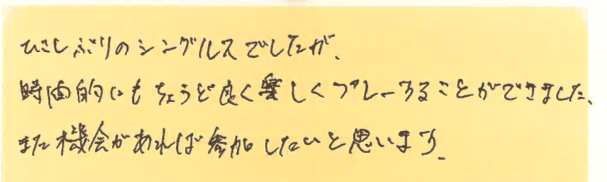 ひさしぶりのシングルスでしたが、
時間的にもちょうど良く楽しくプレーすることができました、
また機会があれば参加したいと思います。